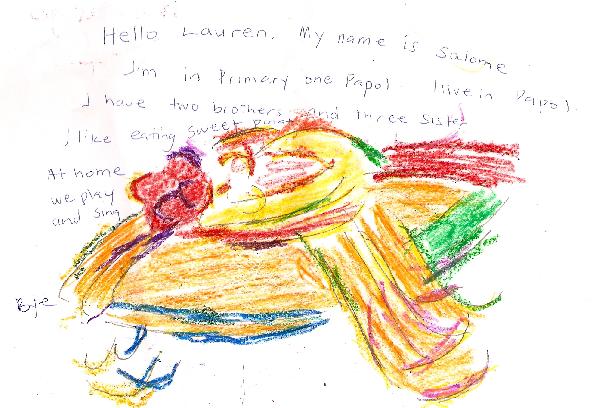 Hello Lauren. My name is Salome
I'm in Primary one Papol. I live in Papol.
I have two brothers and three sister
I like eating sweet
At home
we play
and sing